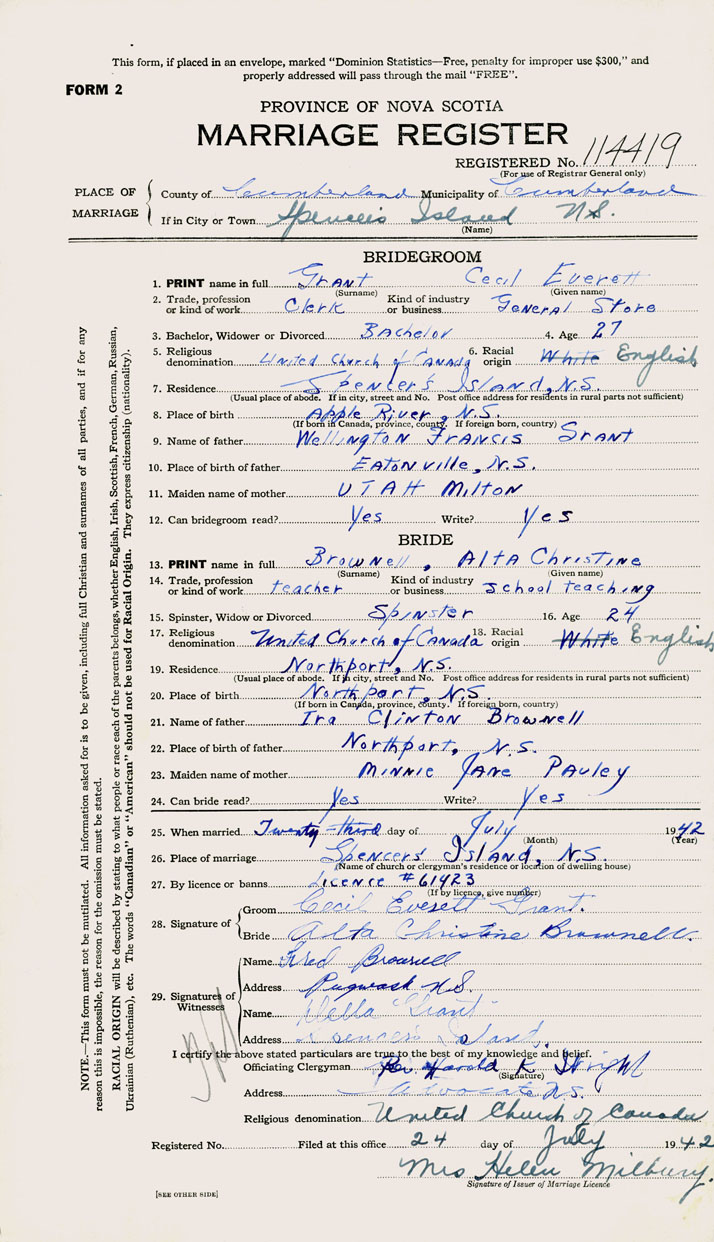 This form, if placed in an envelope, marked "Dominion Statistics—Free, penalty for improper use $300," and
properly addressed will pass through the mail "FREE".
FORM 2
PROVINCE OF NOVA SCOTIA
MARRIAGE REGISTER
REGISTERED No. 114419
(For use of Registrar General only)
PLACE OF MARRIAGE
County of Cumberland Municipality of Cumberland
If in City or Town Spencers Island N.S.
(Name)
BRIDEGROOM
1. PRINT name in full Grant Cecil Everett
(Surname) (Given name)
2. Trade, profession or kind of work Clerk Kind of industry or business General Store
3. Bachelor, Widower or Divorced Bachelor 4. Age 27
5. Religious denomination United Church of Canada 6. Racial origin White English
7. Residence Spencer's Island, N.S.
(Usual place of abode. If in city, street and No. Post office address for residents in rural parts not sufficient)
8. Place of birth Apple River, N.S.
(If born in Canada, province, county. If foreign born, country)
9. Name of father Wellington Francis Grant
10. Place of birth of father Eatonville, N.S.
11. Maiden name of mother UTAH Milton
12. Can bridegroom read? Yes Write? Yes
BRIDE
13. PRINT name in full Brownell, Alta Christine
(Surname) (Given name)
14. Trade, profession or kind of work teacher Kind of industry or business School teaching
15. Spinster, Widow or Divorced Spinster 16. Age 24
17. Religious denomination United Church of Canada 18. Racial origin White English
19. Residence Northport, N.S.
(Usual place of abode. If in city, street and No. Post office address for residents in rural parts not sufficient)
20. Place of birth Northport, N.S.
(If born in Canada, province, county. If foreign born, country)
21. Name of father Ira Clinton Brownell
22. Place of birth of father Northport, N.S.
23. Maiden name of mother Minnie Jane Pauley
24. Can bride read? Yes Write? Yes
25. When married Twenty-third day of July 1942
(Month) (Year)
26. Place of marriage Spencers Island, N.S.
(Name of church or clergyman's residence or location of dwelling house)
27. By licence or banns Licence #61423
(If by licence, give number)
28. Signature of
Groom Cecil Everett Grant.
Bride Alta Christine Brownell.
29. Signatures of Witnesses
Name Fred Brownell
Address Pugwash N.S.
Name Della Grant
Address Spencer's Island.
I certify the above stated particulars are true to the best of my knowledge and belief.
Officiating Clergyman Rev. Harold K
(Signature)
Address Advocate N.S.
Religious denomination United Church of Canada
Registered No. Filed at this office 24 day of July 1942
Mrs Helen Milbury.
Signature of Issuer of Marriage Licence
[SEE OTHER SIDE]
NOTE.—This form must not be mutilated. All information asked for is to be given, including full Christian and surnames of all parties, and if for any
reason this is impossible, the reason for the omission must be stated.
RACIAL ORIGIN will be described by stating to what people or race each of the parents belongs, whether English, Irish, Scottish, French, German, Russian,
Ukrainian (Ruthenian), etc. The words "Canadian" or "American" should not be used for Racial Origin. They express citizenship (nationality).